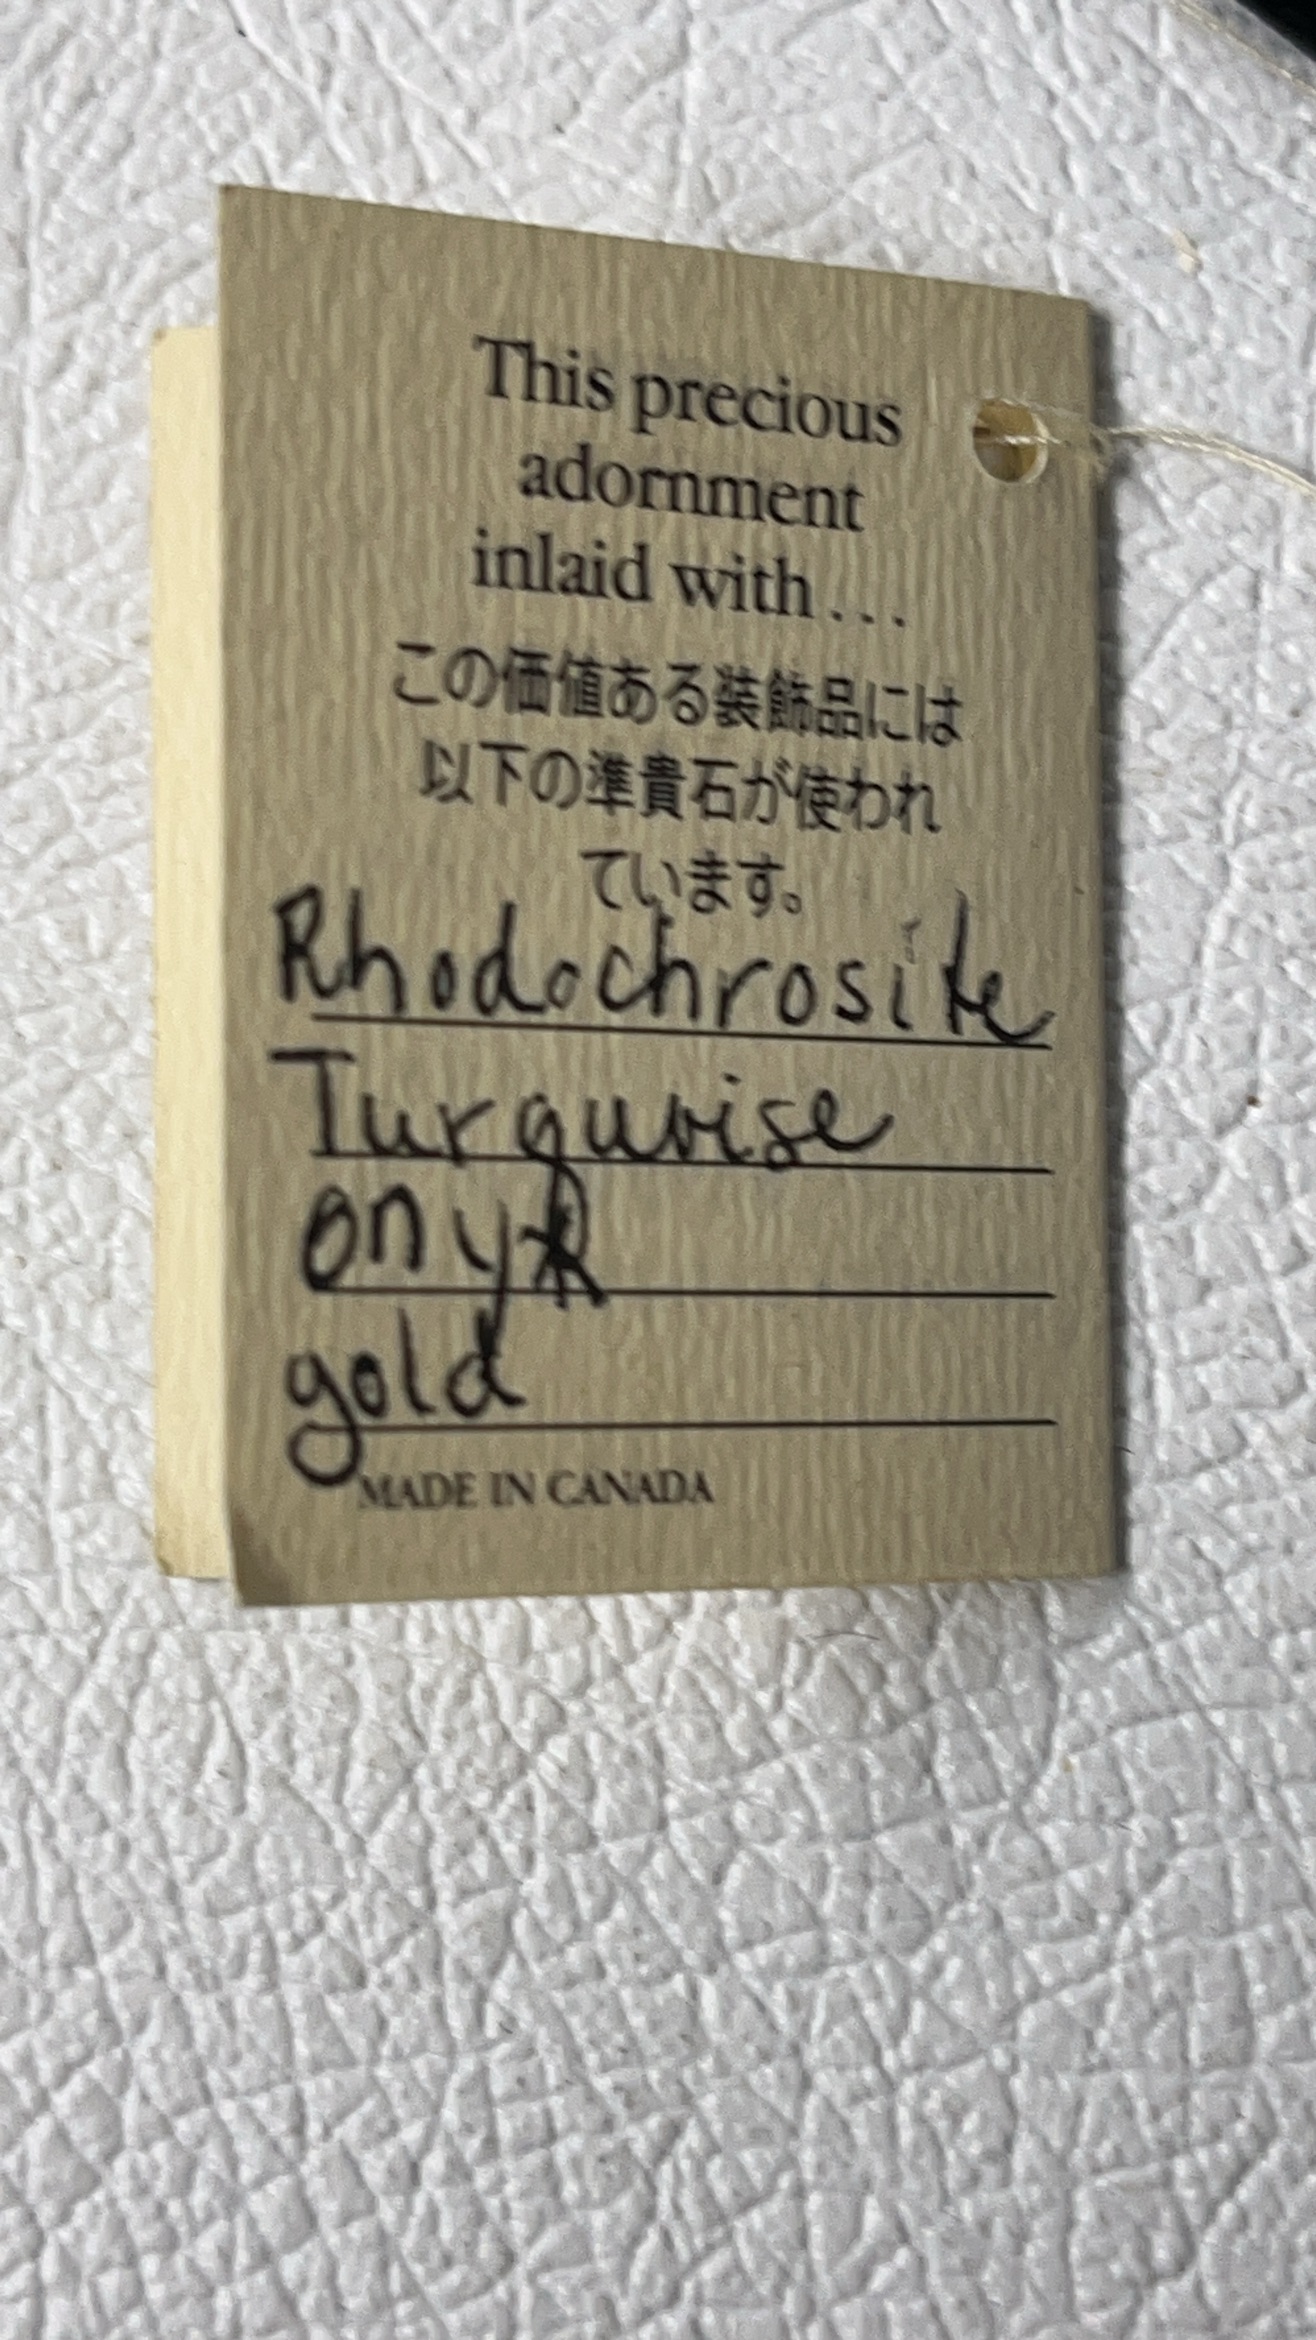 This precious
adornment
inlaid with...
この価値ある装飾品には
以下の準貴石が使われ
ています。
Rhodochrosite
Turquoise
onyx
gold
MADE IN CANADA